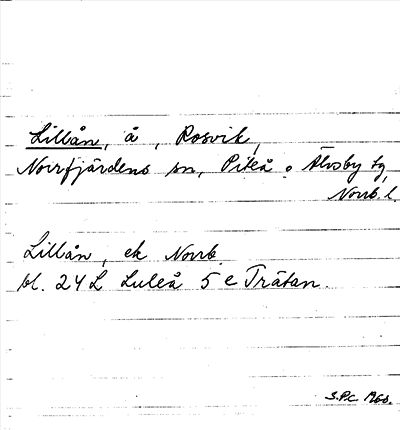 Lillån, å, Rosvik,
Norrfjärdens sn, Piteå o Älvsby tg,
Norrb. l.
Lillån, ek Norrb.
bl. 24 L Luleå 5 e Trätan.
S.P.C. 1968.